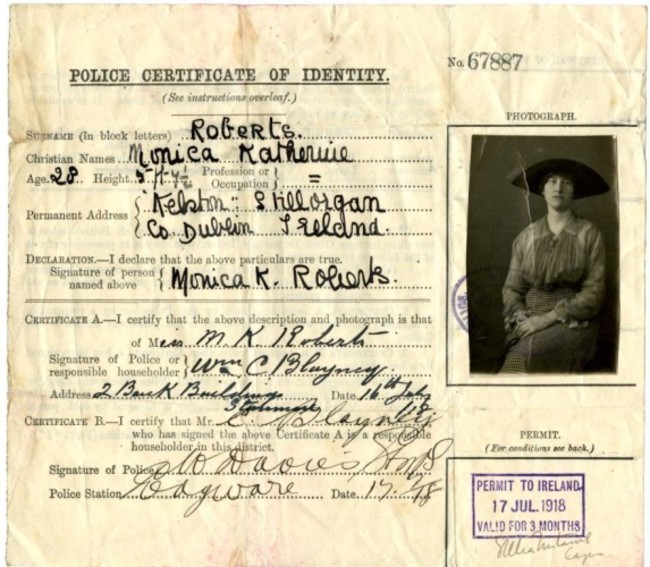 No. 67887
POLICE CERTIFICATE OF IDENTITY.
(See instructions overleaf.)
PHOTOGRAPH.
SURNAME (in block letters) Roberts.
Christian Names Monica Katherine
Age. 28 Height. 5ft 7½ Profession or Occupation } =
Permanent Address { "Kelston" Stillorgan
Co. Dublin Ireland.
DECLARATION.—I declare that the above particulars are true.
Signature of person named above { Monica K. Roberts.
CERTIFICATE A.—I certify that the above description and photograph is that
of Miss M. K. Roberts
Signature of Police or responsible householder } Wm C Blayney
Address 2 Bank Buildings Date 16th July
Stanmore /18
CERTIFICATE B.—I certify that Mr. C. Blayney
who has signed the above Certificate A is a responsible
householder in this district.
Signature of Police W Davies
Police Station Edgware Date. 17
PERMIT.
(For conditions see back.)
PERMIT TO IRELAND
17 JUL. 1918
VALID FOR 3 MONTHS